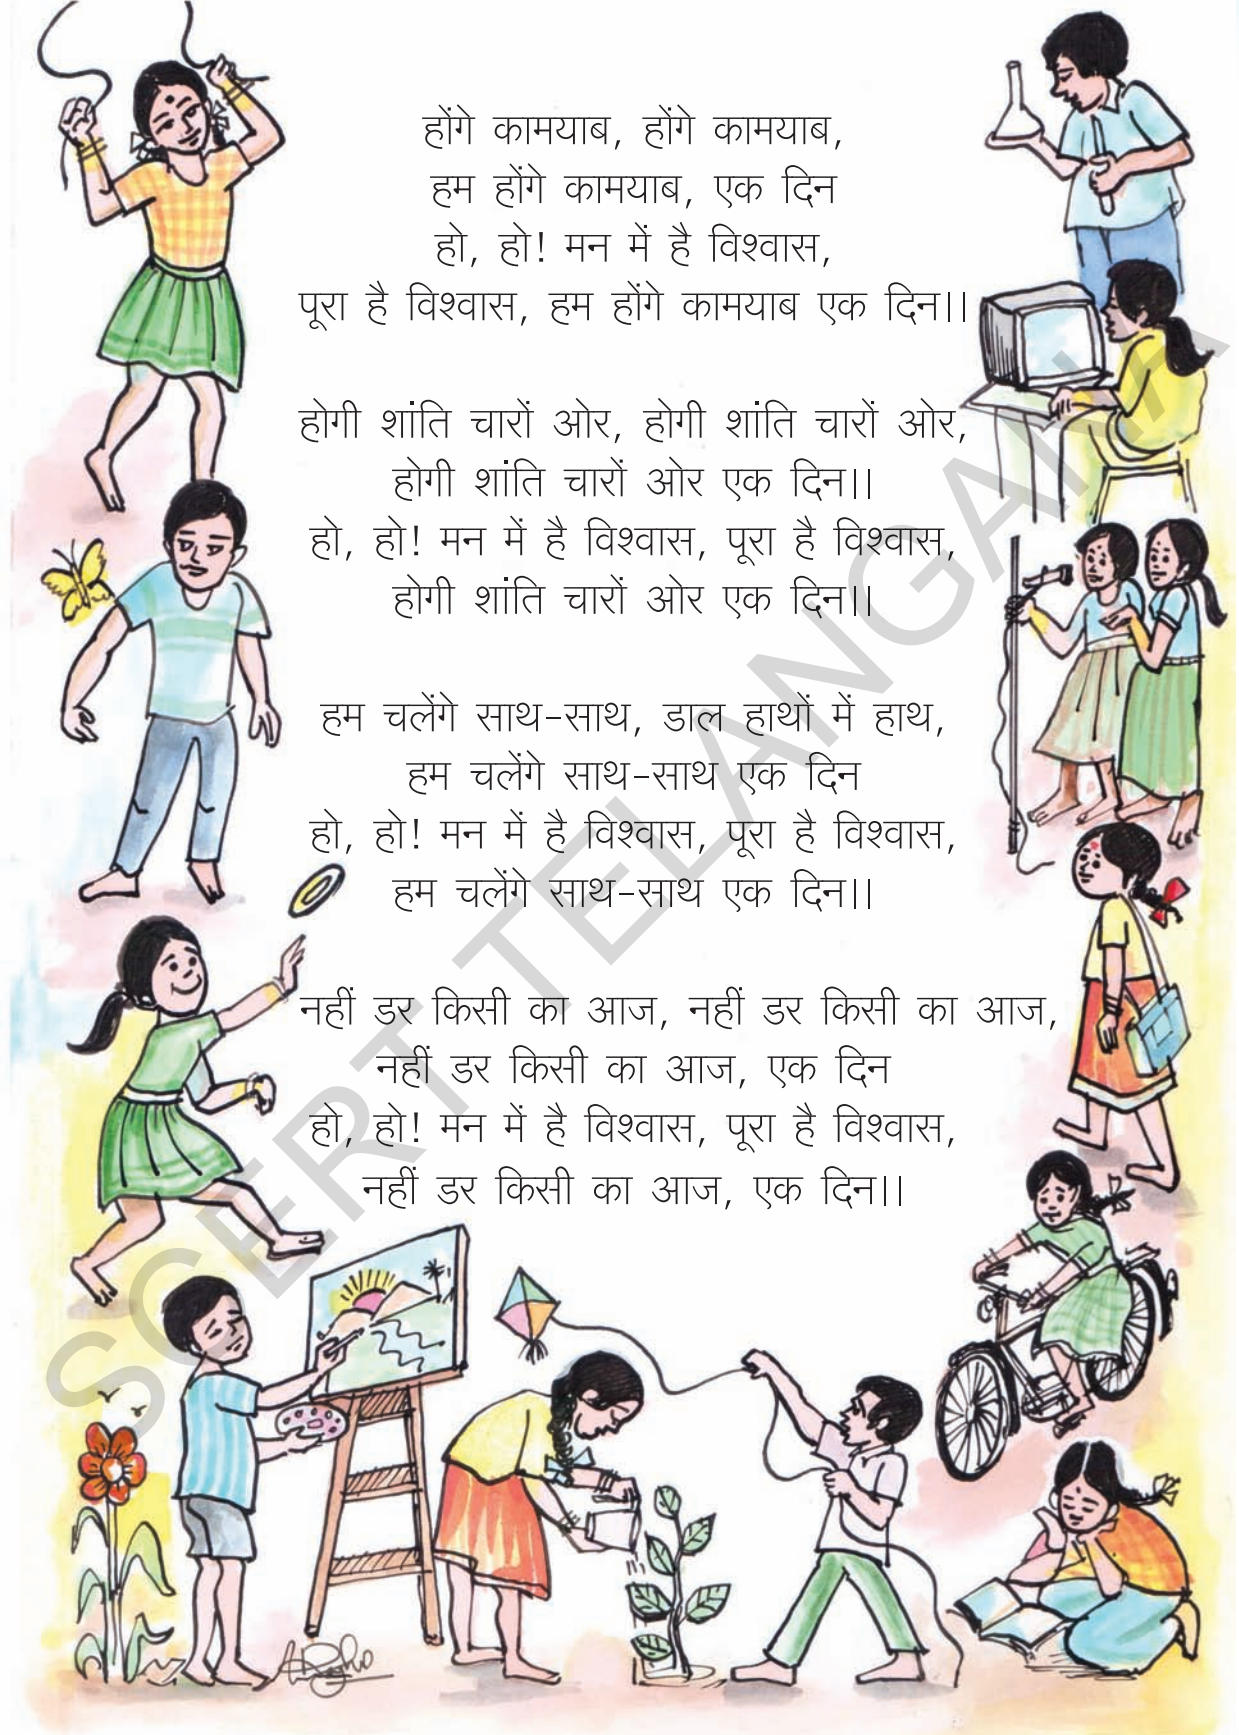 होंगे कामयाब, होंगे कामयाब,
हम होंगे कामयाब, एक दिन
हो, हो! मन में है विश्वास,
पूरा है विश्वास, हम होंगे कामयाब एक दिन।।
होगी शांति चारों ओर, होगी शांति चारों ओर,
होगी शांति चारों ओर एक दिन।।
हो, हो! मन में है विश्वास, पूरा है विश्वास,
होगी शांति चारों ओर एक दिन।।
हम चलेंगे साथ-साथ, डाल हाथों में हाथ,
हम चलेंगे साथ-साथ एक दिन
हो, हो! मन में है विश्वास, पूरा है विश्वास,
हम चलेंगे साथ-साथ एक दिन।।
नहीं डर किसी का आज, नहीं डर किसी का आज,
नहीं डर किसी का आज, एक दिन
हो, हो! मन में है विश्वास, पूरा है विश्वास,
नहीं डर किसी का आज, एक दिन।।
SCERT TELANGANA